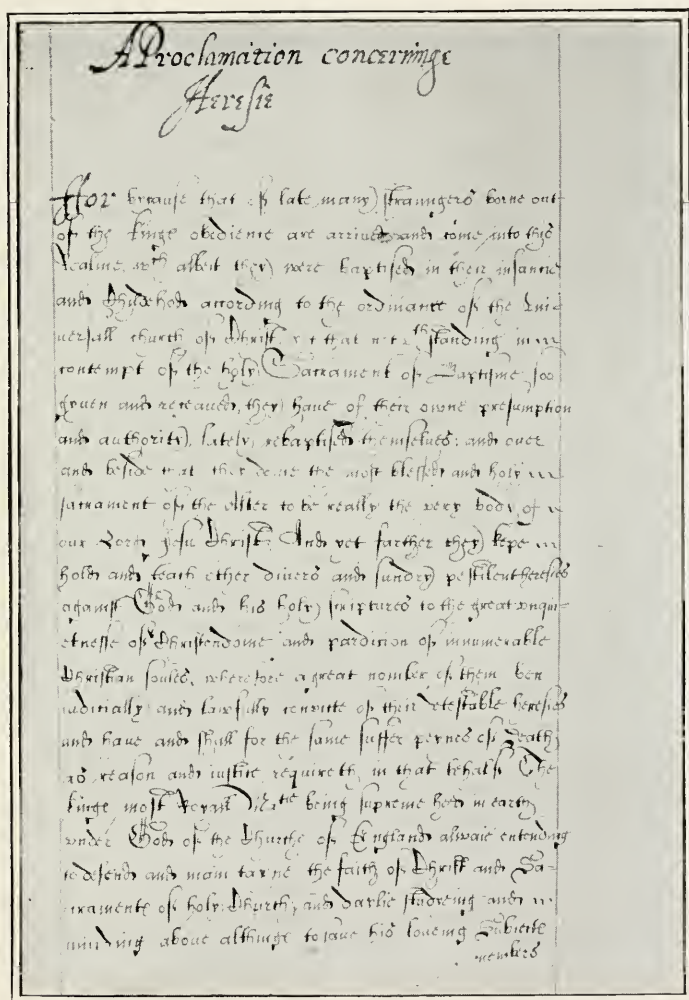 A Proclamation concerninge
Heresie
ffor because that of late many straungers borne out
of the kinge obedience are arrived and come into this
Realme, wch albeit they were baptised in their infancie
and Childehod according to the ordinance of the Uni-
versall church of Christ, yet that notwthstanding in
contempt of the holy Sacrament of Baptisme, soo
gyven and receaued, they haue of their owne presumption
and authority, lately rebaptised themselues: and over
and beside that they denie the most blessed and holy
sacrament of the alter to be really the very body of
our Lord Jesu Christ. And yet farther they kepe
hold and teach other divers and sundry pestilent heresies
against God and his holy scriptures to the great unqui-
etnesse of Christendome and pardition of innumerable
Christian soules, wherefore a great nomber of them ben
iuditially and lawfully convicte of their detestable heresies
and have and shall for the same suffer peynes of Death,
as reason and iustice requireth in that behalf. The
kinge most Royall Matie being supreme hed in earth
under God of the Churche of England alwaie entending
to defend and maintayne the faith of Christ and Sa-
cramente of holy Church, and darlie studyeing and
minding above althinge to saue his loveing Subiecte
members